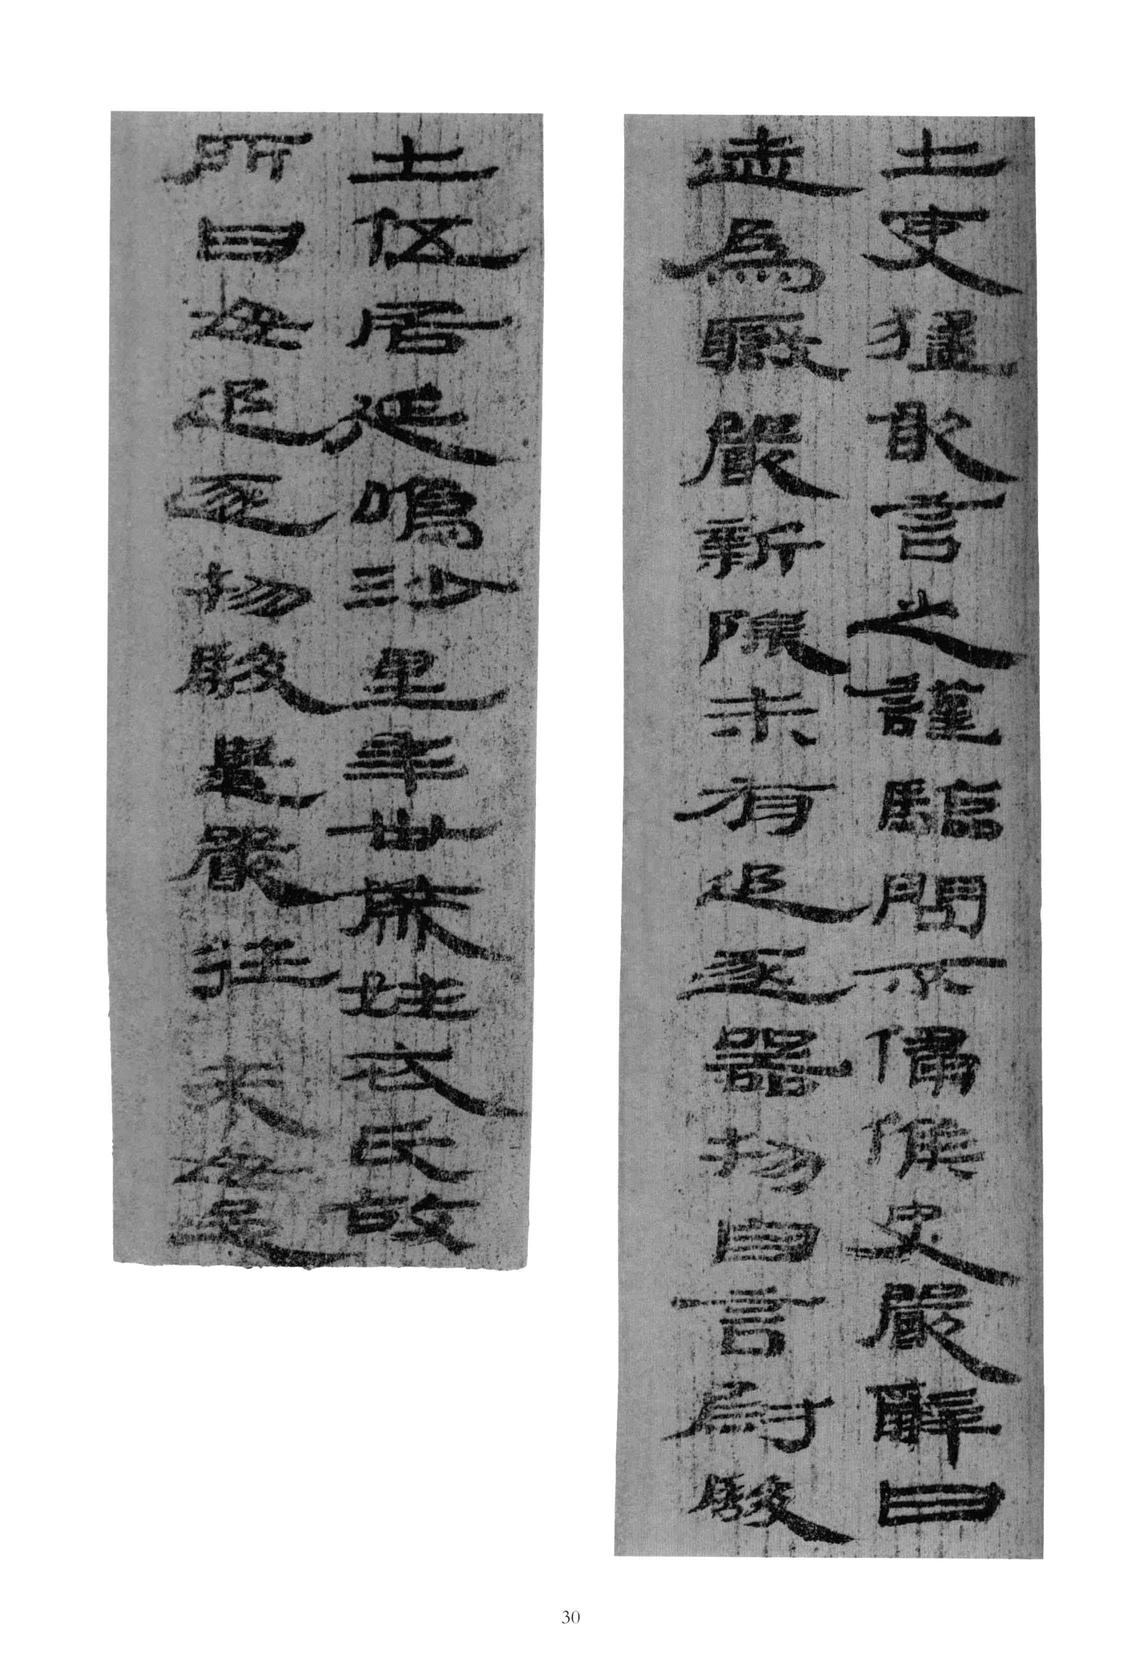 士吏猛敢言之謹驗問不備候史嚴辭曰
迹為職嚴新除未有追逐器物自言尉駿
士伍居延鳴沙里年卅歲姓衣氏故
所曰毋追逐物駿遣嚴往來毋
30